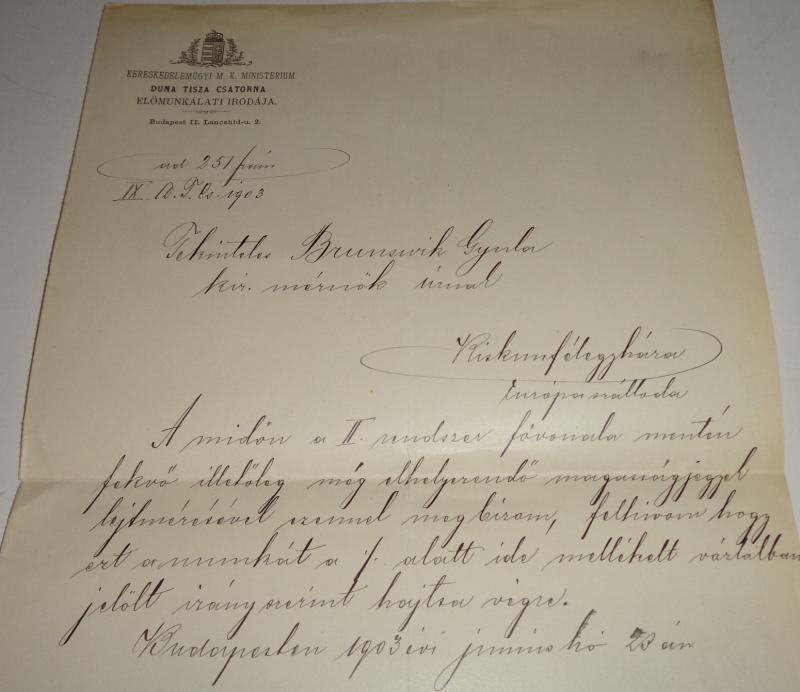 KERESKEDELEMÜGYI M. K. MINISTERIUM
DUNA TISZA CSATORNA
ELŐMUNKÁLATI IRODÁJA.
Budapest II. Lánczhíd-u. 2.
ad 251 szám
IX D. T. Cs. 1903
Tekintetes Brunswik Gyula
kir. mérnök úrnak
Kiskunfélegyháza
Európa szálloda
A midőn a II. rendszer fővonala mentén
fekvő illetőleg még elhelyezendő magasságjegyek
lejtmérésével ezennel megbízom, felhivom hogy
ezt a munkát a /. alatt ide mellékelt vázlatban
jelölt irány szerint hajtsa végre.
Budapesten 1903 évi junius hó 23 án